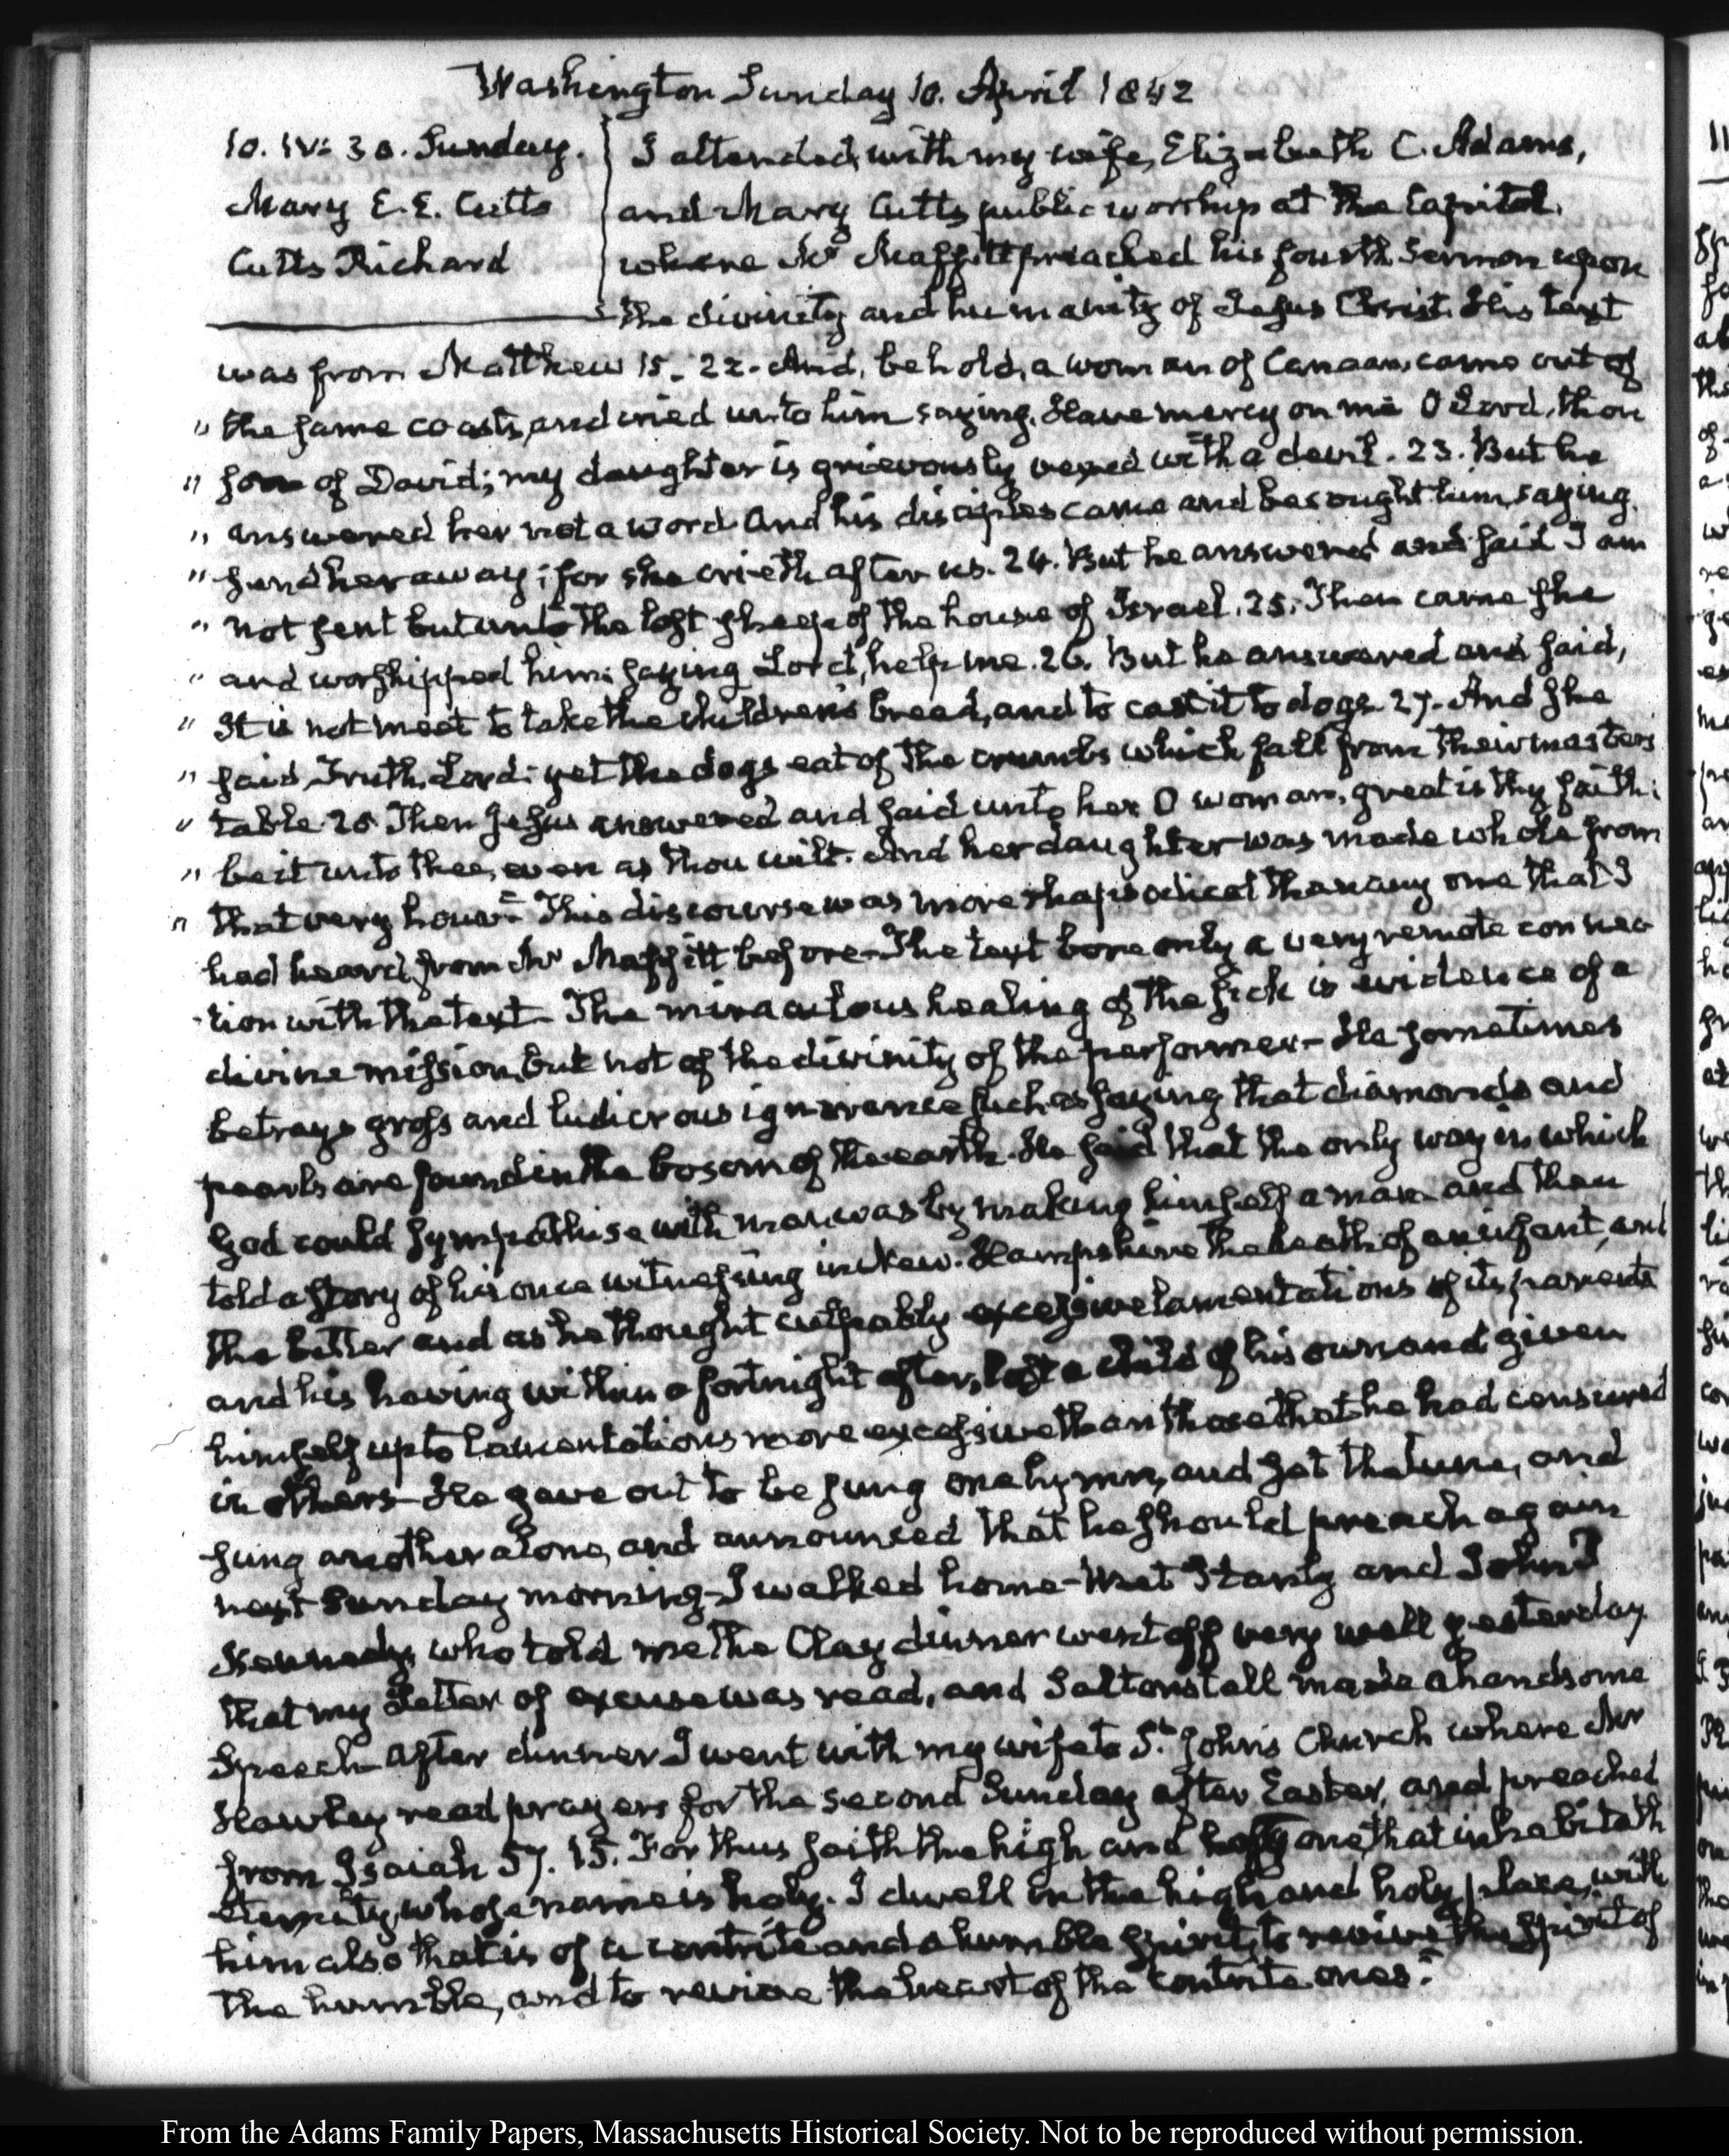 Washington Sunday 10. April 1842
10. IV: 30. Sunday.
Mary E. E. Cutts
Cutts Richard
I attended, with my wife, Elizabeth C. Adams,
and Mary Cutts public worship at the Capitol,
where Mr Maffitt preached his fourth Sermon upon
the divinity and humanity of Jesus Christ. His text
was from Matthew 15. 22. And, behold, a woman of Canaan, came out of
" the same coasts, and cried unto him saying, Have mercy on me O Lord, thou
" son of David; my daughter is grievously vexed with a devil. 23. But he
" answered her not a word. And his disciples came and besought him, saying,
" send her away; for she crieth after us. 24. But he answered and said I am
" not sent but unto the lost sheep of the house of Israel. 25. Then came she
" and worshipped him: saying Lord, help me. 26. But he answered and said,
" It is not meet to take the children's bread, and to cast it to dogs. 27. And she
" said, Truth, Lord: yet the dogs eat of the crumbs which fall from their masters
" table. 28. Then Jesus answered and said unto her O woman, great is thy faith:
" be it unto thee, even as thou wilt. And her daughter was made whole from
" that very hour." This discourse was more rhapsodical than any one that I
had heard from Mr Maffitt before- The text bore only a very remote connec-
-tion with the text- The miraculous healing of the sick is evidence of a
divine mission, but not of the divinity of the performer- He sometimes
betrays gross and ludicrous ignorance such as saying that diamonds and
pearls are found in the bosom of the earth. He said that the only way in which
God could sympathise with man, was by making himself a man and then
told a story of his once witnessing in New-Hampshire the death of an infant, and
the bitter and as he thought culpably excessive lamentations of its parents
and his having within a fortnight after, lost a child of his own and given
himself up to lamentations more excessive than those that he had censured
in others- He gave out to be sung one hymn, and set the tune, and
sung another alone, and announced that he should preach again
next Sunday morning- I walked home- Met Stanly and John P
Kennedy, who told me the Clay dinner went off very well yesterday
that my Letter of excuse was read, and Saltonstall made a handsome
Speech- After dinner I went with my wife to St. John's Church where Mr
Hawley read prayers for the second Sunday after Easter, and preached
from Isaiah 57. 15. For thus saith the high and lofty one that inhabiteth
eternity, whose name is holy. I dwell in the high and holy place, with
him also that is of a contrite and a humble spirit, to revive the spirit of
the humble, and to revive the heart of the contrite ones."
From the Adams Family Papers, Massachusetts Historical Society. Not to be reproduced without permission.